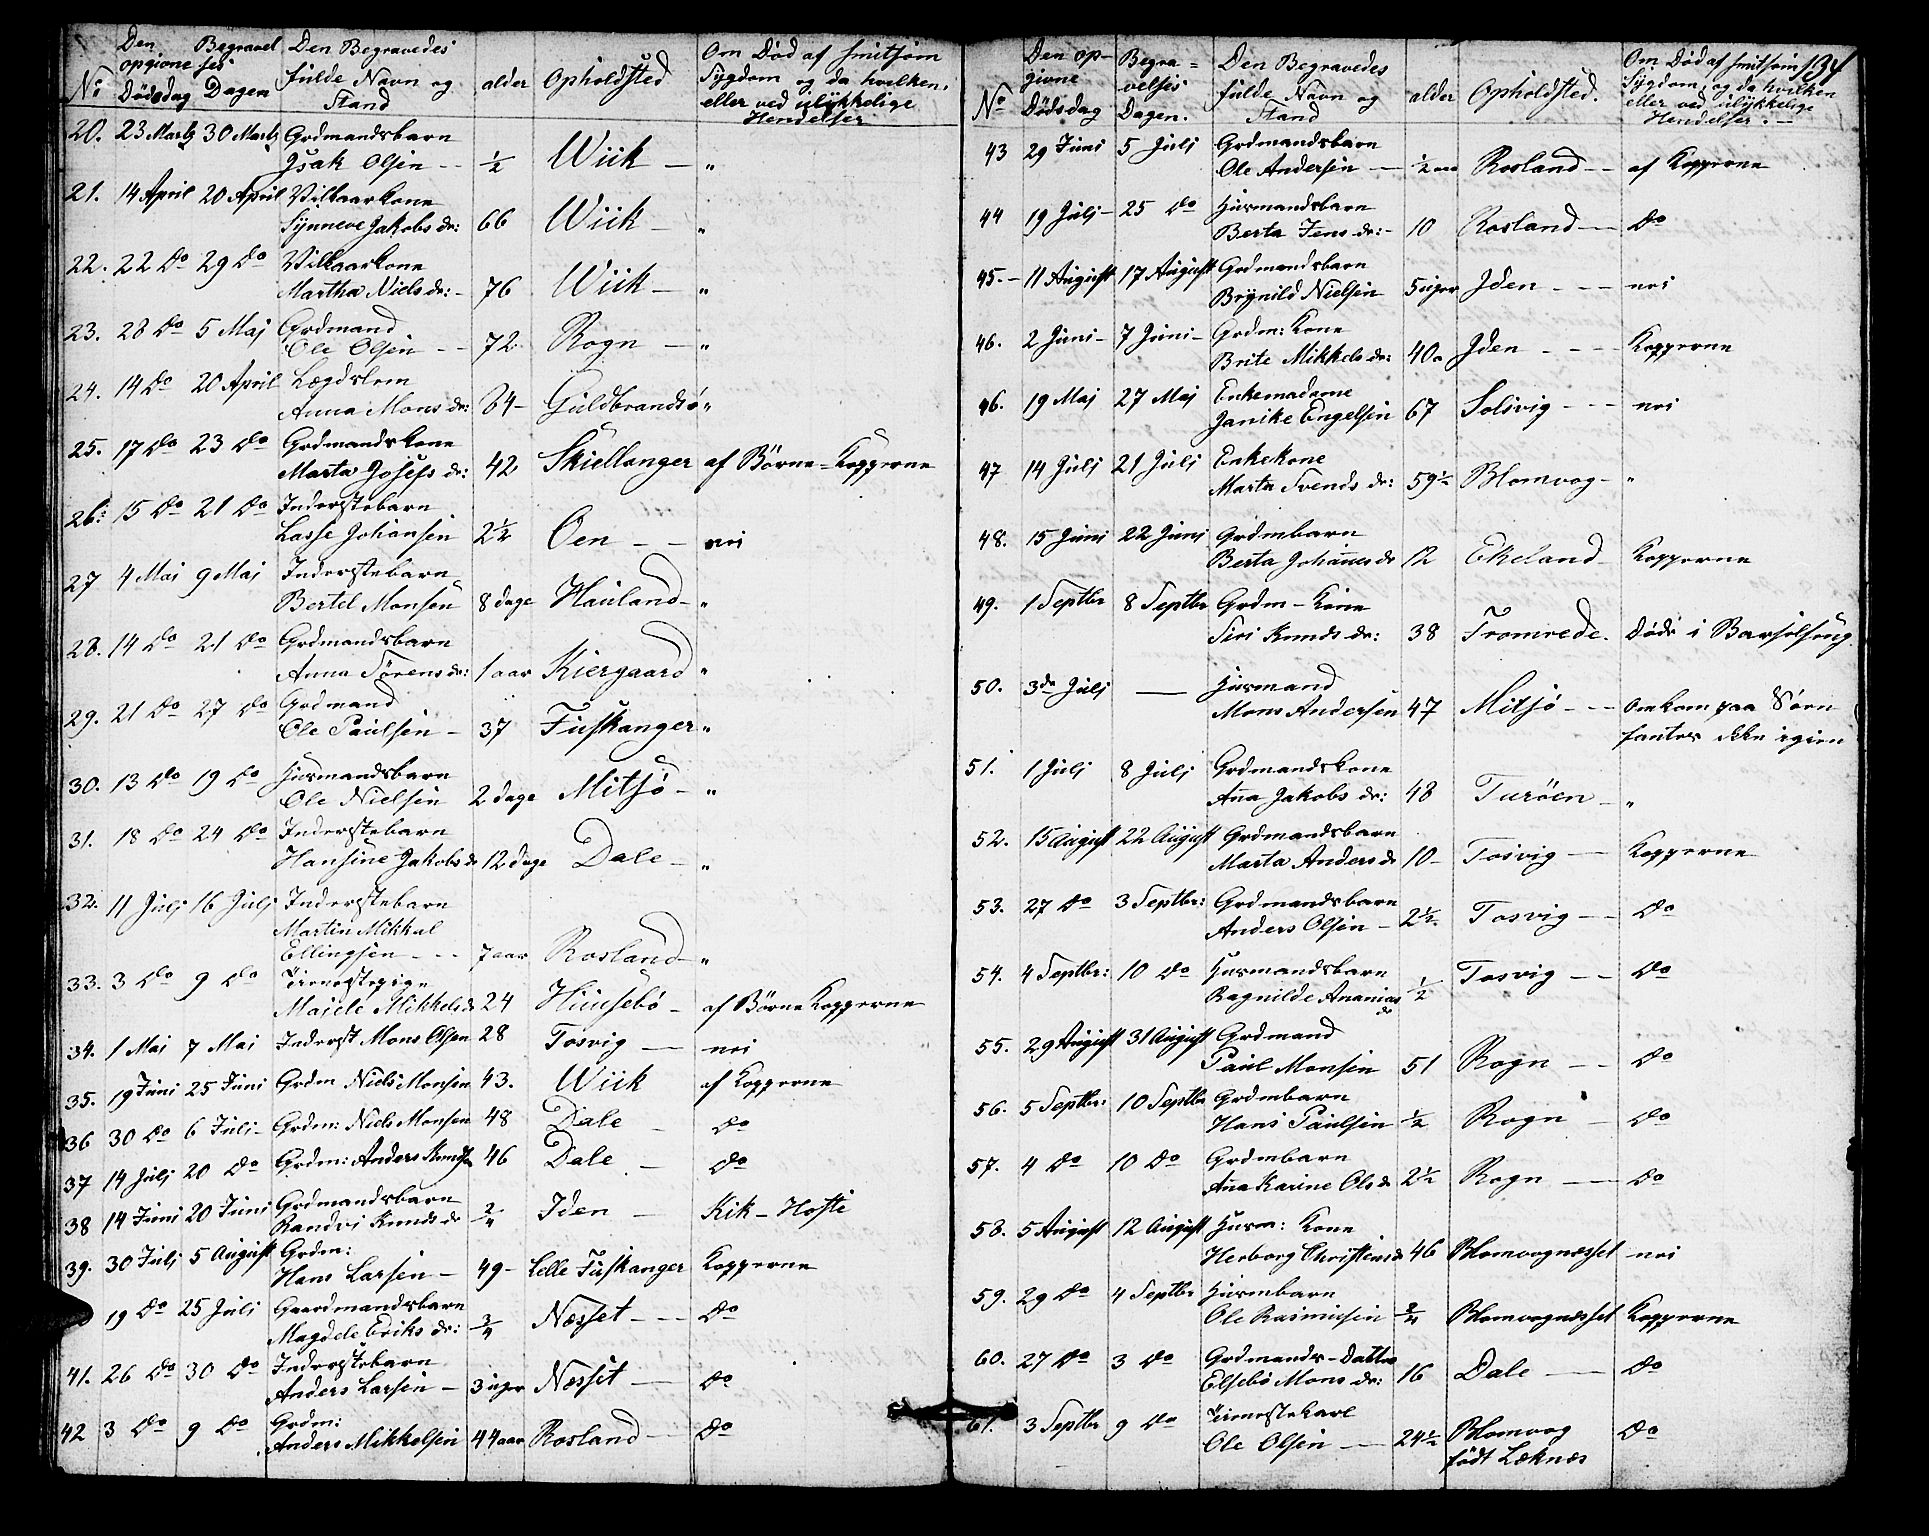 Den opgivne Dødsdag | Begravelses Dagen | Den Begravedes fulde Navn og Stand | alder | Opholdsted | Om Død af smitsom Sygdom og da hvilken, eller ved ulykkelige Hendelser
No
20. 23 Marts 30 Marts Grdmandsbarn
Isak Olsen -- ½ Wiik — "
21. 14 April 20 April Vilkaarkone
Synneve Jakobs dr: 66 Wiik — "
22. 22 do 29 do Vilkaarkone
Martha Niels dr: - 76 Wiik — "
23. 28 do 5 Maj Grdmand
Ole Olsen -- 72 Rogn — "
24. 14 do 20 April Lægdslem
Anna Mons dr: 84 - Guldbrandsö "
25. 17 do 23 do Grdmandskone
Marta Josefs dr: 42 Skiellanger af Börne-Kopperne
26: 15 do 21 do Inderstebarn
Lasse Johansen 2½ Oen -- nei
27 4 Mai 9 Mai Inderstebarn
Bertel Monsen 8 dage Hauland - "
28. 14 do 21 do Grdmandsbarn
Anna Sörens dr: 1 aar Kiergaard "
29. 21 do 27 do Grdmand
Ole Paulsen - 37 Fuskanger "
30. 13 do 19 do Husmandsbarn
Ole Nielsen 2 dage Mitsö - "
31. 18 do 24 do Inderstebarn
Hansine Jakobs dr 12 dage Dale - "
32. 11 Julj 16 Julj Inderstebarn
Martin Mikkal
Ellingsen --- 7 aar Rosland "
33. 3 do 9 do Tienestepige
Maiele Mikkels dr 24 Huusebö - af Börne Kopperne
34. 1 Mai 7 Mai Inderst Mons Olsen 28 Tosvig — nei
35. 19 Juni 25 Juni Grdm Niels Monsen 43. Wiik af Kopperne
36 30 do 6 Juli - Grdm: Niels Monsen 48 Dale - do
37 14 Julj 20 do Grdm: Anders Knuds 46 Dale — do
38 14 Juni 20 Juni Grdmandsbarn
Randvi Knuds dr Iden — Kik-Hoste
39. 30 Julj 5 August Grdm:
Hans Larsen — 49 - Lelle Fuskanger Kopperne
19 do 25 Juli Gaardmandsbarn
Magdele Eriks dr: ¾ Næsset --- do
41. 26 do 30 do Inderstebarn
Anders Larsen — 3 uger Næsset — do
42 3 do 9 do Grdm:
Anders Mikkelsen 44 aar Rosland — do
134
No | Den opgivne Dødsdag | Begravelses Dagen. | Den Begravedes fulde Navn og Stand | alder | Opholdsted. | Om Död af smitsom Sygdom, og da hvilken eller ved ulykkelige Hendelser. —
43 29 Juni 5 Julj Grdmandsbarn
Ole Andersen — ½ aar Rosland -- af Kopperne
44 19 Julj - 25 do Husmandsbarn
Berta Jens dr: - 10 Rosland — do
45. - 11 August 17 August Grdmandsbarn
Brynild Nielsen 5 uger Iden --- nei
46. 2 Juni - 7 Juni - Grdm: Kone
Brite Mikkels dr: 40 Iden --- Kopperne
46. 19 Maj 27 Maj Enkemadame
Janike Engelsen 67 Solsvig --- nei
47 14 Julj 21 Julj Enkekone
Marta Svends dr: 59½ Blomvog - "
48. 15 Juni 22 Juni Grdmbarn
Berta Johannes dr 12 Ekeland - Kopperne
49. 1 Septbr 8 Septbr Grdm-Kone
Siri Knuds dr: 38 Tromrede. Döde i Barselseng
50. 3de Julj — Husmand
Mons Andersen 47 Mitsjö -- Omkom paa Söen
fantes ikke igien
51. 1 Julj 8 Julj Grdmandskone
Ana Jakobs dr: 48 Turöen - "
52. 15 August 22 August Grdmandsbarn
Marta Anders dr 10 - Tosvig — Kopperne
53. 27 do 3 Septbr: Grdmandsbarn
Anders Olsen - 2½ Tosvig -- do
54. 4 Septbr: 10 do Husmandsbarn
Ragnilde Ananias dr ½ Tosvig -- do
55. 29 August 31 August Grdmand
Paul Monsen 51 Rogn -- do
56. 5 Septbr: 10 Septbr Grdmbarn
Hans Paulsen ½ Rogn — do
57. 4 do 10 do Grdmbarn
Ana Karine Ols dr 2½ Rogn — do
58. 5 August 12 August Husm: Kone
Herborg Christens dr 46 Blomvognæsset nei
59. 29 do 4 Septbr Husmbarn
Ole Rasmusen ¾ Blomvognæsset Kopperne
60. 27 do 3 do Grdmands-Datter
Elsebö Mons dr: 16 Dale — do
61. 3 Septbr 9 do Tienestekarl
Ole Olsen — 24½ Blomvog do
födt Læknæs